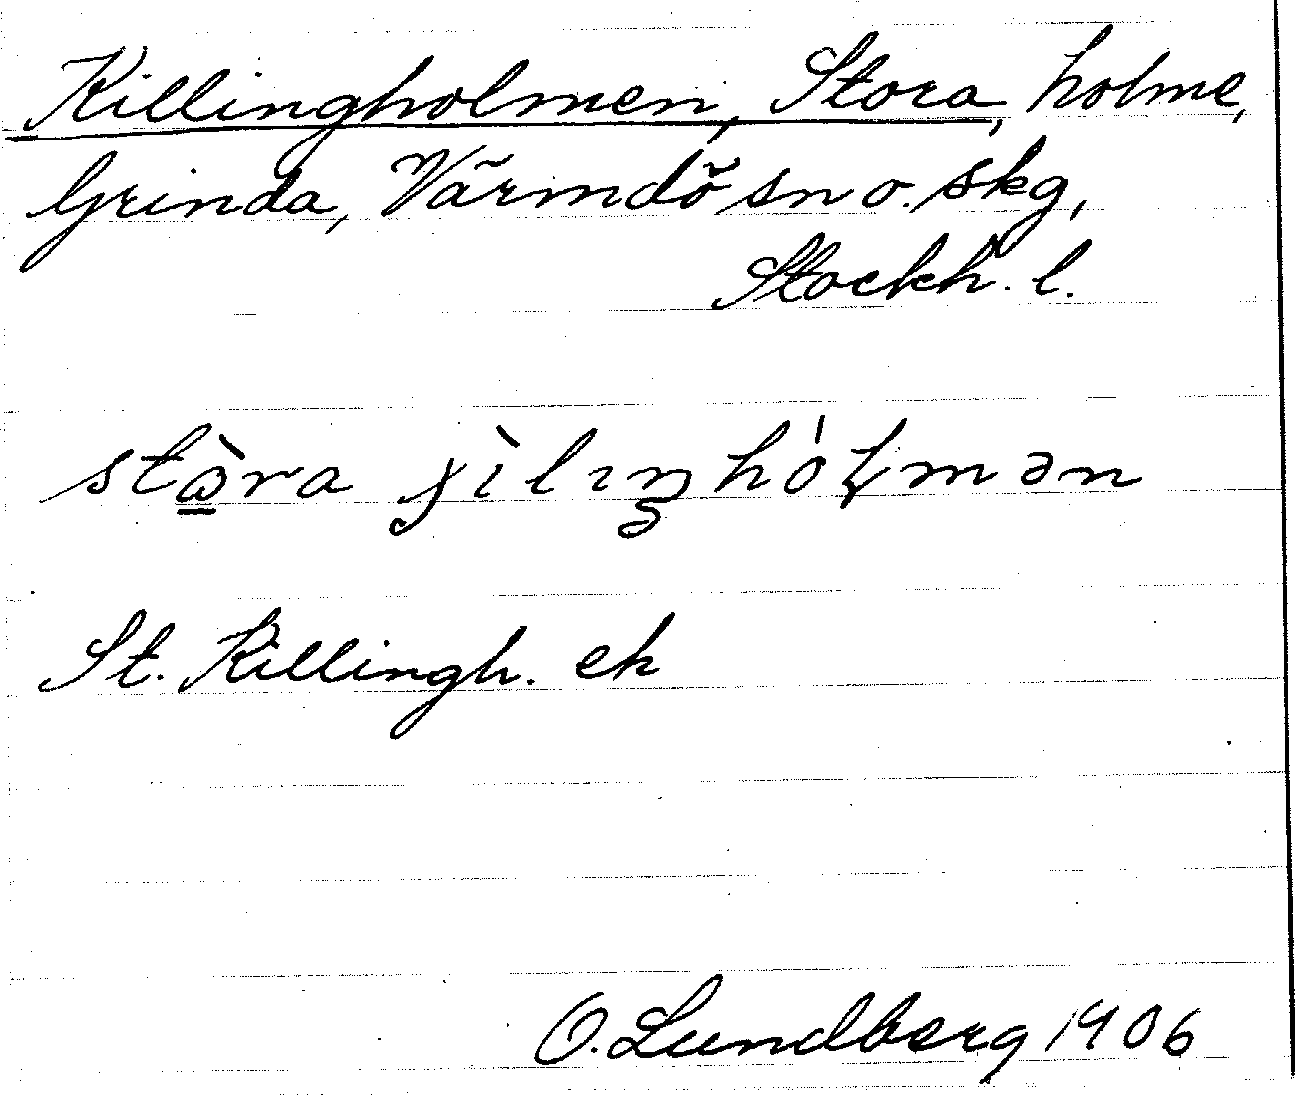 Killingholmen, Stora, holme,
Grinda, Värmdö sn o. skg,
Stockh. l.
stɷ̲̀ra ʃìlıŋhóɭmən
St. Killingh. ek
O. Lundberg 1906